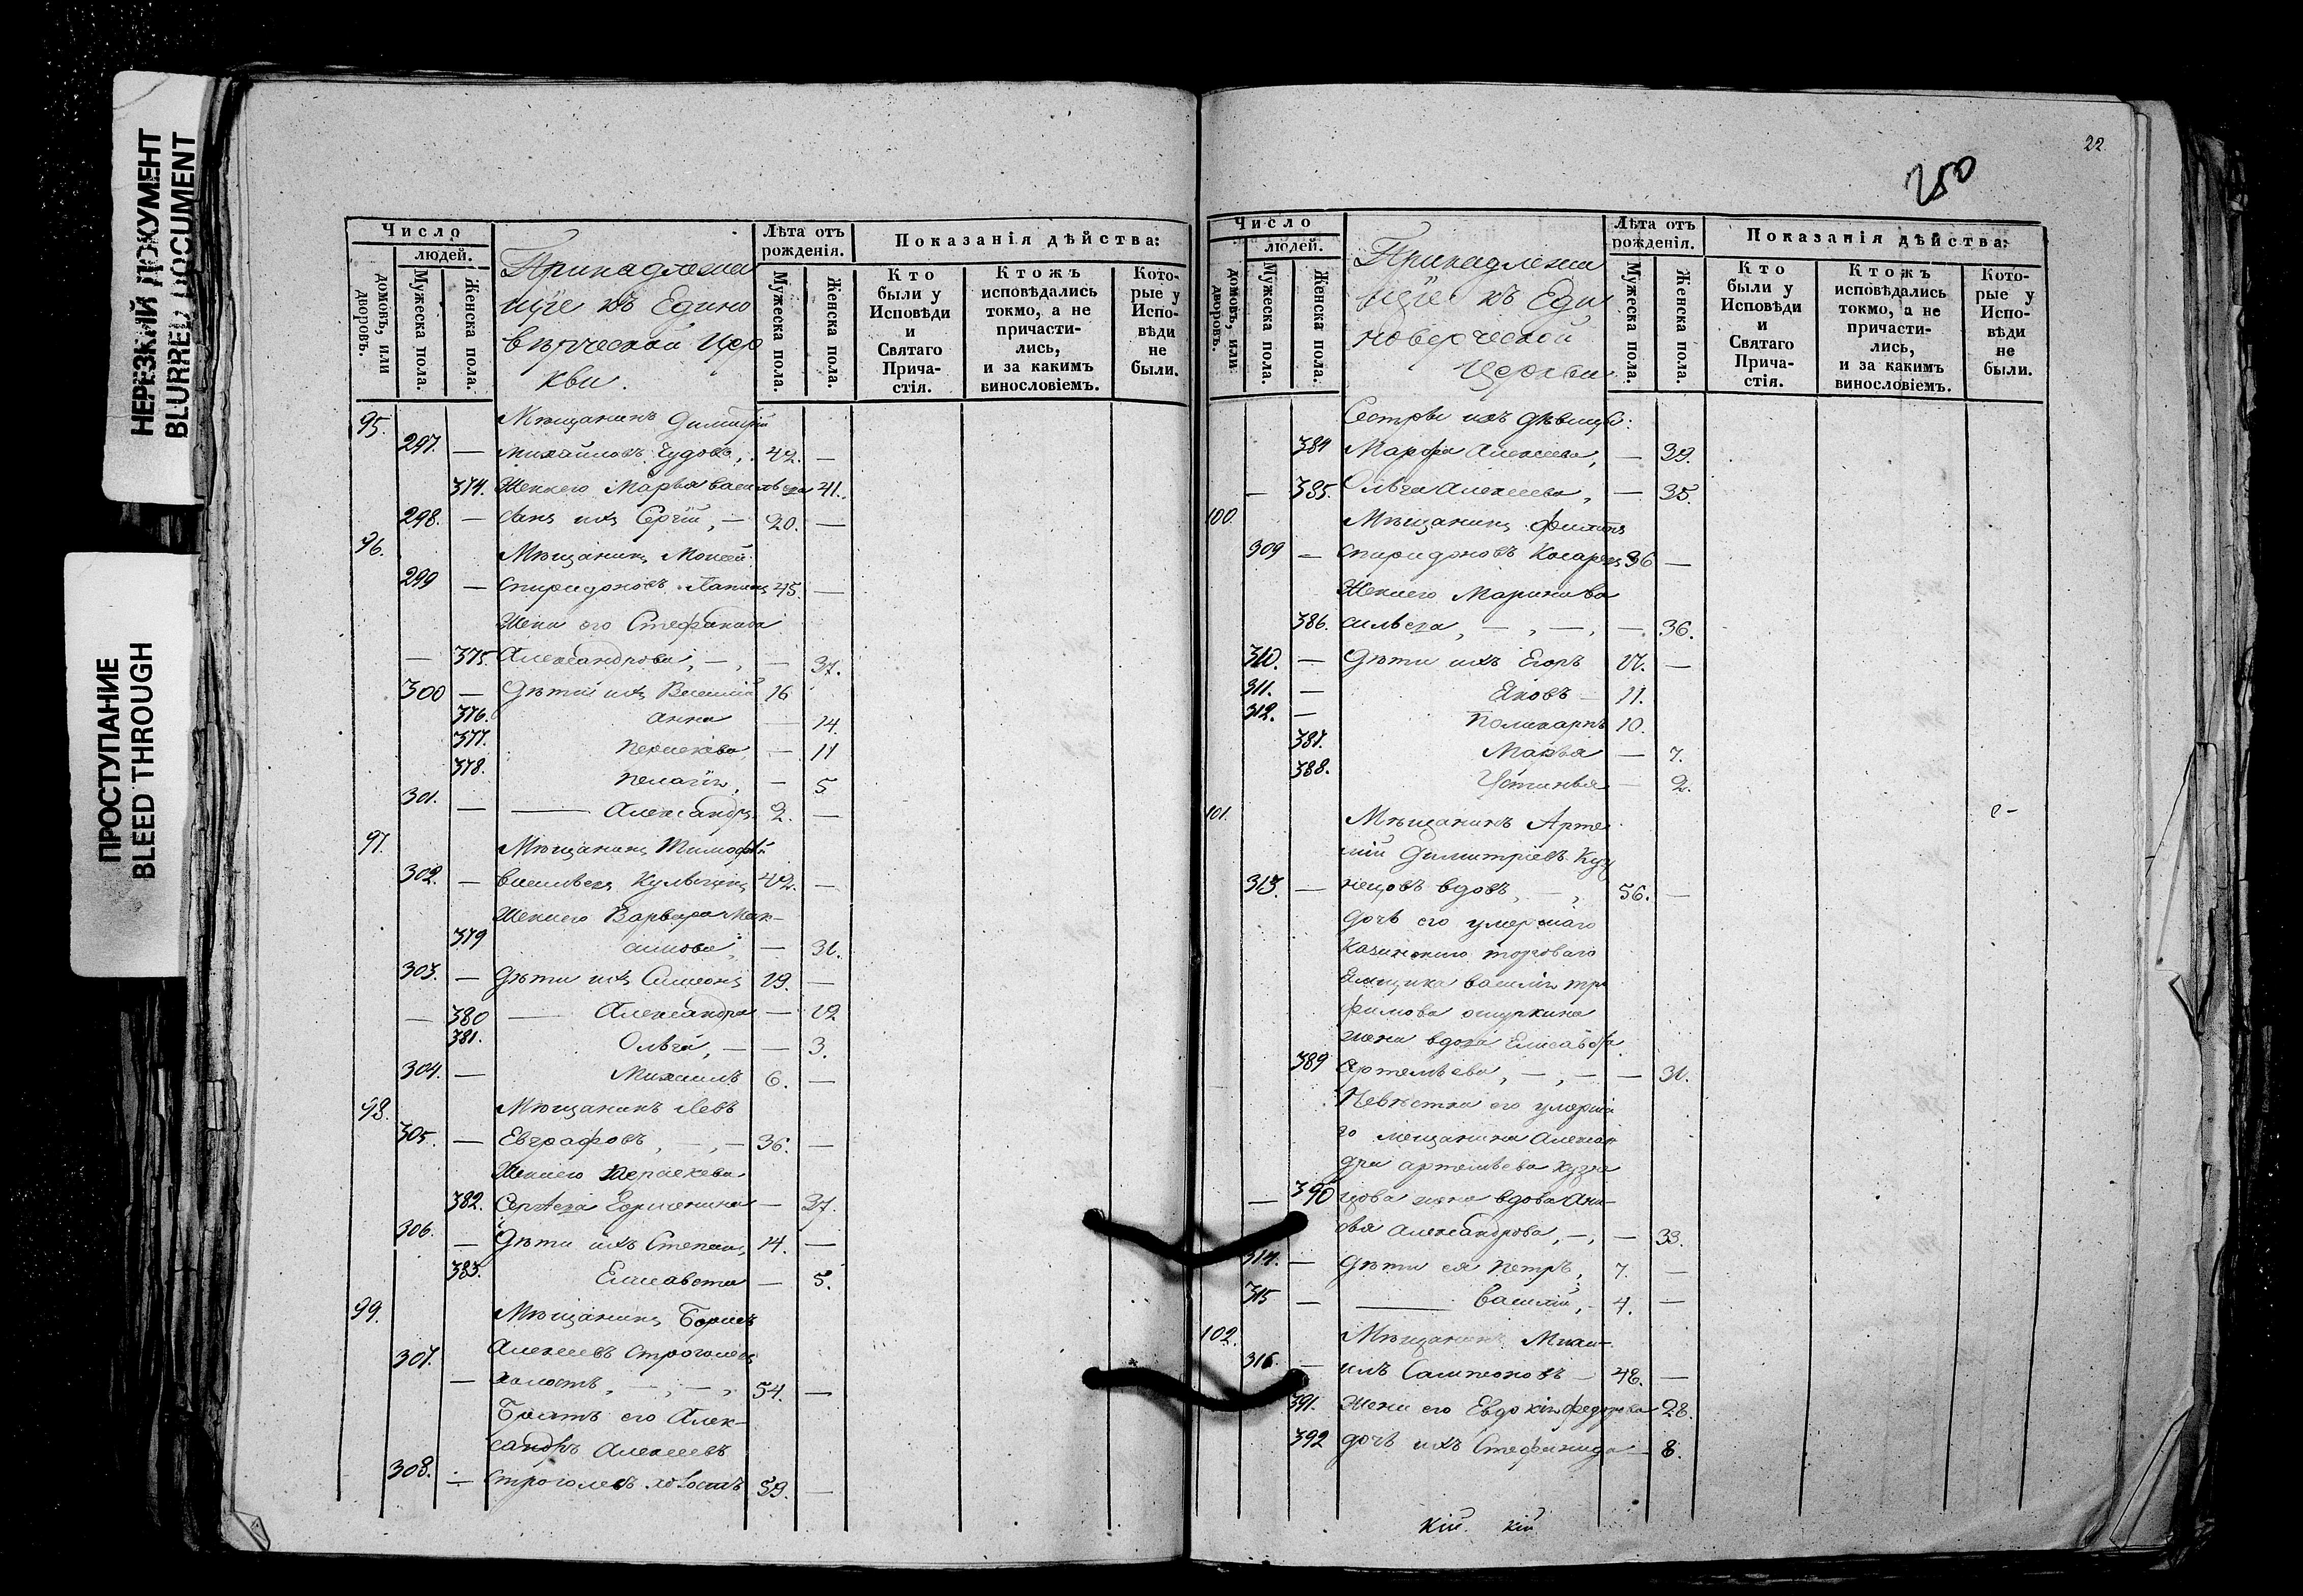 НЕРЕЗКИЙ ДОКУМЕНТ
BLURRED DOCUMENT
ПРОСТУПАНИЕ
BLEED THROUGH
Число
людей.
домовъ, или дворовъ.
Мужеска пола.
Женска пола.
Принадлежа
щіе къ Едино
вѣрческой Цер
кви.
Лѣта отъ рожденія.
Мужеска пола.
Женска пола.
Показанія дѣйства:
Кто были у Исповѣди и Святаго Причастія.
Ктожъ исповѣдались токмо, а не причастились, и за какимъ винословіемъ.
Которые у Исповѣди не были.
95. Мѣщанинъ Димитрій
297. — Михайловъ Чудовъ, 42. —
374. Жена его Марья Васильева 41.
298. — Сынъ ихъ Сергій, — 20. —
96. Мѣщанинъ Мокей
299 — Спиридоновъ 45. —
Жена его Стефанида
— 375. Александрова, — , — 37.
300 — Дѣти ихъ Василій 16
376. Анна — 14.
377. Параскева — 11
378. Пелагія, — 5
301. — — Александръ 2. —
97. Мѣщанинъ Тимофей
302. — Васильевъ 42. —
Жена его Варвара Мак-
379 симова, — 31.
303. — Дѣти ихъ Симеонъ 19. —
— 380 — Александра — 12
381. Ольга, — — 3.
304. — Михаилъ 6. —
98. Мѣщанинъ Левъ
305. — Евграфовъ, — , — 36. —
Жена его Параскева
382. Сергѣева — 37.
306. — Дѣти ихъ Степанъ, 14. —
383. Елисавета — 5.
99. Мѣщанинъ Борисъ
307. Алексеевъ
— холостъ, — , — , 54. —
Братъ его Алек-
сандръ Алексеевъ
308. — холостъ 59. —
22
250
Число
людей.
домовъ, или дворовъ.
Мужеска пола.
Женска пола.
Принадлежа
щіе къ Еди
новерческой
Церкви
Лѣта отъ рожденія.
Мужеска пола.
Женска пола.
Показанія дѣйства:
Кто были у Исповѣди и Святаго Причастія.
Ктожъ исповѣдались токмо, а не причастились, и за какимъ винословіемъ.
Которые у Исповѣди не были.
Сестры ихъ дѣвицы:
384 Марфа Алексеева, — 39.
— 385. Ольга Алексеева, — 35.
100. Мѣщанинъ Филипъ
309 — Спиридоновъ 36 —
Жена его Марина Ва
386. сильева, — , — , — 36.
310. — Дѣти ихъ Егоръ 17. —
311. — Яковъ — 11.
312. — Поликарпъ 10.
387. Марья — 7.
388. Устинья — 2.
101. Мѣщанинъ Арте
мій Димитріевъ Куз
313. — нецовъ вдовъ, — , 56. —
дочь его умершаго
торговаго
Ямщика Василія Тро
фимова
жена вдова Елисавефа
389 Артемьева, — , — — 31.
Невѣстка его умерша
го мещанина Алексан
дра Артемьева Кузне
— 390 цова жена вдова
Александрова, — , — 33.
314. — Дѣти ея Петръ, 7. —
315 — — Василій, — 4. —
102. Мѣщанинъ Миха-
316. — илъ Сампсоновъ — 48. —
391. Жена его Евдокія Федорова 28.
392 дочь ихъ Стефанида — 8.
кій. кій